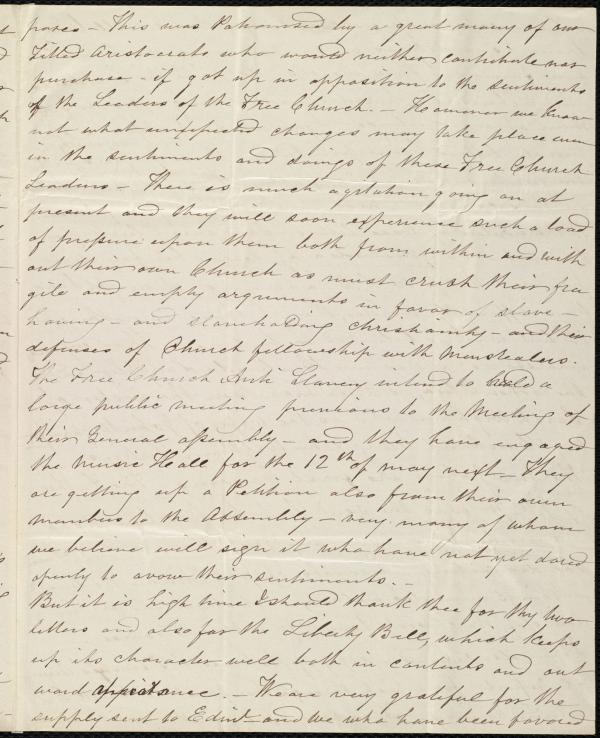 pores - This was Patronised by a great many of our
Titled Aristocrats who would neither contribute nor
purchase - if got up in opposition to the sentiments
of the Leaders of the Free Church. - However we know
not what unexpected changes may take place even
in the sentiments and doings of these Free Church
Leaders - There is much agitation going on at
present and they will soon experience such a load
of pressure upon them both from within and with
out their own Church as must crush their fra
gile and empty arguments in favor of slave -
having - and slaveholding Christianity - and their
defenses of Church fellowship with Menstealers.
The Free Church Anti Slavery intend to hold a
large public meeting previous to the Meeting of
their General Assembly - and they have engaged
the Music Hall for the 12th of May next - They
are getting up a Petition also from their own
members to the Assembly - very many of whom
we believe will sign it who have not yet dared
openly to avow their sentiments. -
But it is high time I should thank thee for thy two
letters and also for the Liberty Bell, which keeps
up its character well both in contents and out
ward appearance. - We are very grateful for the
supply sent to Edinr - and we who have been favored